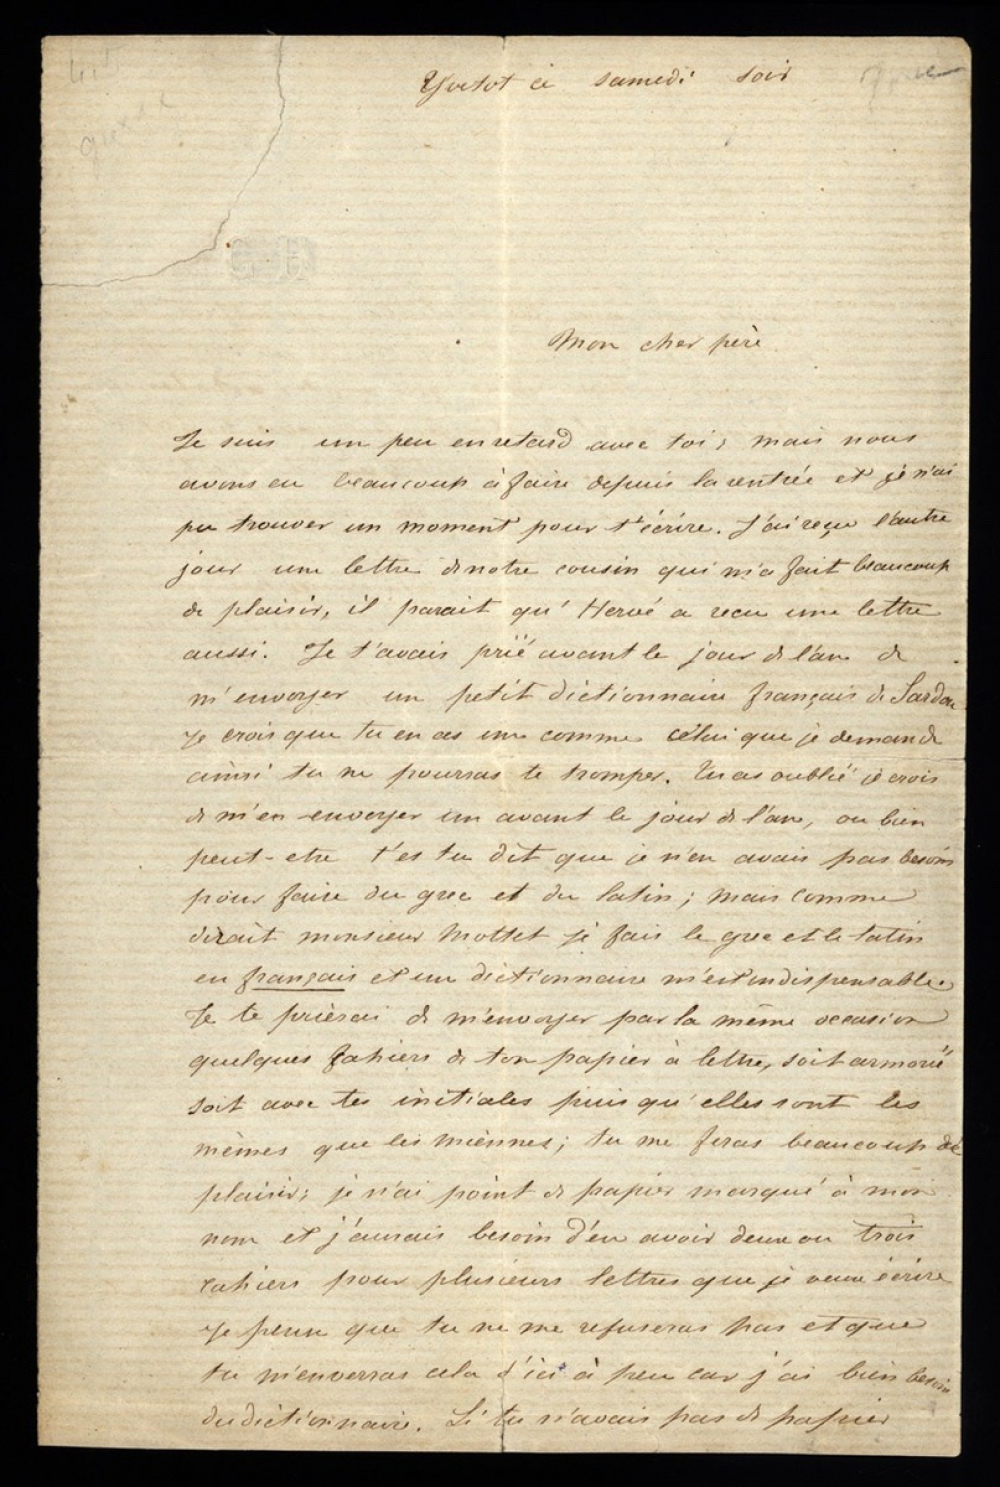 Yvetot ce samedi soir
Mon cher père
Je suis un peu en retard avec toi; mais nous
avons eu beaucoup à faire depuis la rentrée et je n'ai
pu trouver un moment pour t'écrire. J'ai reçu l'autre
jour une lettre de notre cousin qui m'a fait beaucoup
de plaisir, il parait qu'Hervé a recu une lettre
aussi. Je t'avais prié avant le jour de l'an de
m'envoyer un petit dictionnaire français de Sardou
je crois que tu en as un comme celui que je demande
ainsi tu ne pourras te tromper. Tu as oublié je crois
de m'en envoyer un avant le jour de l'an, ou bien
peut-etre t'es tu dit que je n'en avais pas besoin
pour faire du grec et du latin; mais comme
dirait monsieur Mottet je fais le grec et le latin
en français et un dictionnaire m'est indispensable.
Je te prierai de m'envoyer par la même occasion
quelques cahiers de ton papier à lettre, soit armorié
soit avec tes initiales puis qu'elles sont les
mêmes que les miennes; tu me feras beaucoup de
plaisir; je n'ai point de papier marqué à mon
nom et j'aurais besoin d'en avoir deux ou trois
cahiers pour plusieurs lettres que je veux écrire
Je pense que tu ne me refuseras pas et que
tu m'enverras cela d'ici à peu car j'ai bien besoin
du dictionnaire. Si tu n'avais pas de papier